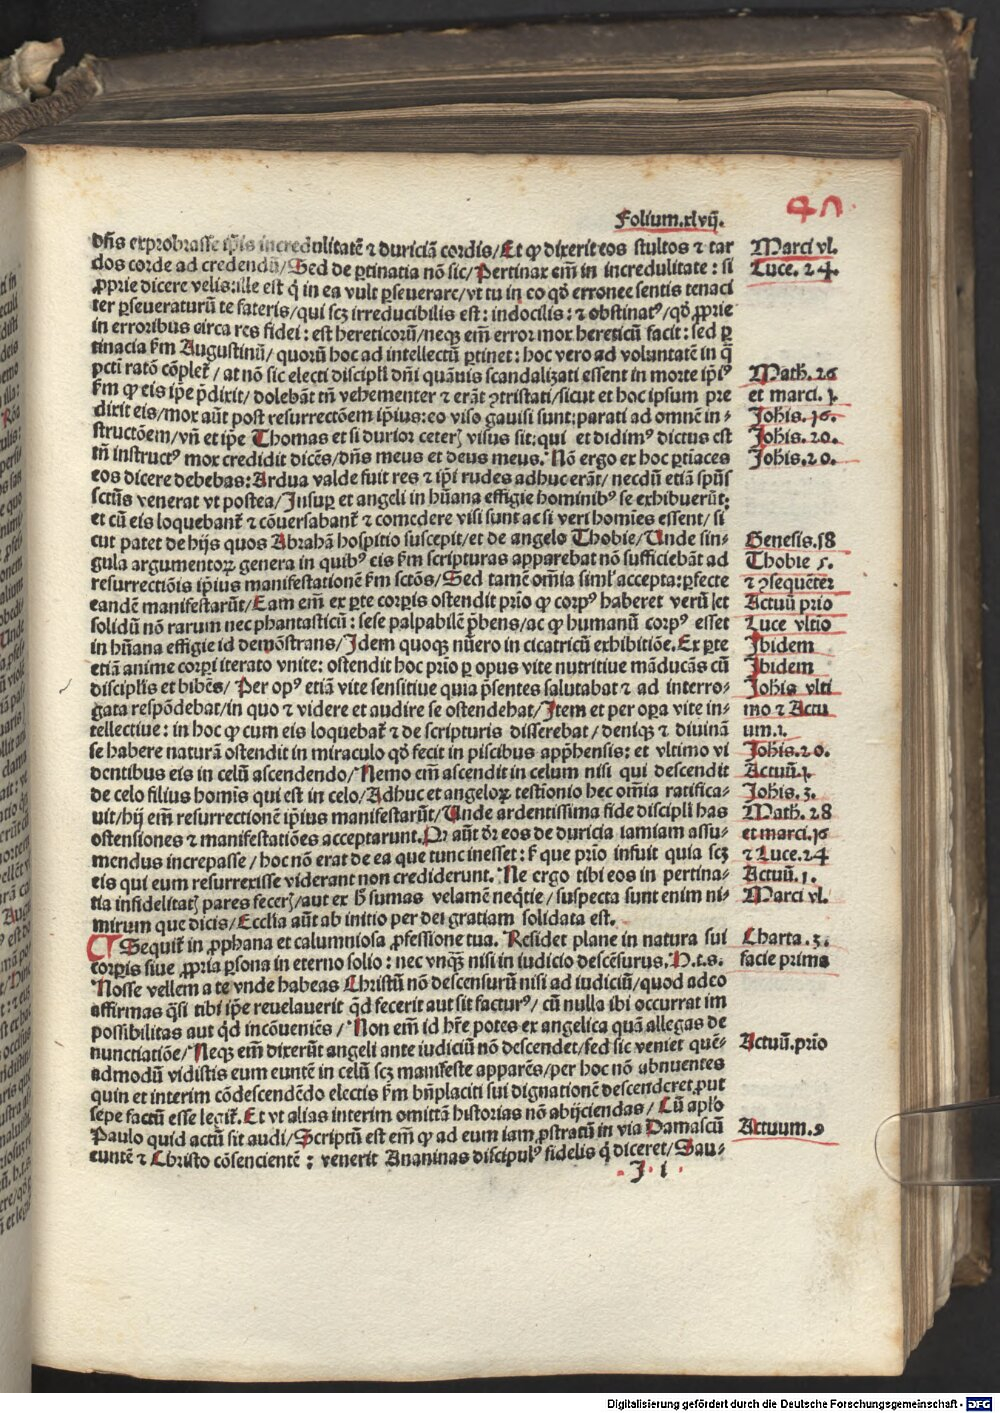 47.
Folium.xlvij.
dn̄s exprobrasse ip̄is incredulitatē ⁊ duriciā cordis/Et ꝙ dixerit eos stultos ⁊ tar Marci vl.
dos corde ad credendū/Sed de ꝑtinatia nō sic/Pertinax em̄ in incredulitate: si Luce. 24.
ꝓprie dicere velis:ille est q̄ in ea vult ꝑseuerare/vt tu in eo qd̄ erronee sentis tenaci
ter ꝑseueraturū te fateris/qui scꝫ irreducibilis est: indocilis: ⁊ obstinatꝰ/qd̄ ꝓprie
in erroribus circa res fidei: est hereticorū/neqꝫ em̄ error mox hereticū facit: sed ꝑ
tinacia ẜm Augustinū/quorū hoc ad intellectū ꝑtinet: hoc vero ad voluntatē in q̄
ꝑcti ratō cōplet᷑/at nō sic electi discipli dn̄i quāuis scandalizati essent in morte ip̄iꝰ Math. 26
ẜm ꝙ eis ip̄e p̄dixit/dolebāt tn̄ vehementer ⁊ erāt ꝯtristati/sicut et hoc ipsum pre et marci. j.
dixit eis/mox aūt post resurrectōem ip̄ius:eo viso gauisi sunt:parati ad omnē in= Johis. 16.
structōem/vn̄ et ip̄e Thomas et si durior ceterꝫ visus sit:qui et didimꝰ dictus est Johis. 20.
tn̄ instructꝰ mox credidit dicēs/dn̄s meus et deus meus. Nō ergo ex hoc ꝑtinaces Johis.20.
eos dicere debebas:Ardua valde fuit res ⁊ ip̄i rudes adhuc erāt/necdū etiā spūs
sctūs venerat vt postea/Insuꝑ et angeli in hūana effigie hominibꝰ se exhibuerūt:
et cū eis loquebant᷑ ⁊ cōuersabant᷑ ⁊ comedere visi sunt ac si veri homīes essent/si
cut patet de hijs quos Abrahā hospitio suscepit/et de angelo Thobie/Unde sin= Genesis.18
gula argumentoꝝ genera in quibꝰ eis ẜm scripturas apparebat nō sufficiebāt ad Thobie 5.
resurrectiōis ip̄ius manifestationē ẜm sctōs/Sed tamē om̄ia siml̓ accepta:ꝑfecte ⁊ ꝯsequēter
eandē manifestarūt/Eam em̄ ex ꝑte corꝑis ostendit prio ꝙ corpꝰ haberet verū et Actuū prio
solidū nō rarum nec phantasticū: sese palpabilē p̄bens/ac ꝙ humanū corpꝰ esset Luce vltio
in hūana effigie id demōstrans/Idem quoqꝫ nūero in cicatricū exhibitiōe.Ex ꝑte Ibidem
etiā anime corꝑi iterato vnite: ostendit hoc prio ꝑ opus vite nutritiue māducās cū Ibidem
disciplis et bibēs/Per opꝰ etiā vite sensitiue quia p̄sentes salutabat ⁊ ad interro= Johis vlti
gata respōdebat/in quo ⁊ videre et audire se ostendebat/Item et per oꝑa vite in= mo ⁊ Actu
tellectiue: in hoc ꝙ cum eis loquebat᷑ ⁊ de scripturis disserebat/deniqꝫ ⁊ diuinā um.1.
se habere naturā ostendit in miraculo qd̄ fecit in piscibus app̄hensis: et vltimo vi Johis.20.
dentibus eis in celū ascendendo/Nemo em̄ ascendit in celum nisi qui descendit Actuū.j.
de celo filius homīs qui est in celo/Adhuc et angeloꝝ testionio hec om̄ia ratifica= Johis.3.
uit/hij em̄ resurrectionē ip̄ius manifestarūt/Unde ardentissima fide discipli has Math. 28
ostensiones ⁊ manifestatiōes acceptarunt.Qꝛ aūt dr̄ eos de duricia iamiam assu= et marci.16
mendus increpasse/hoc nō erat de ea que tunc inesset: ẜ que prio infuit quia scꝫ ⁊ Luce.24
eis qui eum resurrexisse viderant non crediderunt. Ne ergo tibi eos in pertina= Actuū.1.
tia infidelitatꝫ pares fecerꝫ/aut ex ħ sumas velamē neq̄tie/suspecta sunt enim ni= Marci vl.
mirum que dicis/Ecclia aūt ab initio per dei gratiam solidata est.
¶ Sequit᷑ in ꝓphana et calumniosa ꝓfessione tua. Residet plane in natura sui Charta.3.
corꝑis siue ꝓpria ꝑsona in eterno solio: nec vnqꝫ nisi in iudicio descēsurus. facie prima
Nosse vellem a te vnde habeas Christū nō descensurū nisi ad iudiciū/quod adeo
affirmas q̄si tibi ip̄e reuelauerit qd̄ fecerit aut sit facturꝰ/cū nulla ibi occurrat im
possibilitas aut qd̄ incōueniēs/Non em̄ id hr̄e potes ex angelica quā allegas de
nunciatiōe/Neqꝫ em̄ dixerūt angeli ante iudiciū nō descendet/sed sic veniet quē= Actuū.prio
admodū vidistis eum euntē in celū scꝫ manifeste apparēs/per hoc nō abnuentes
quin et interim cōdescendēdo electis ẜm bn̄placiti sui dignationē descenderet ꝓut
sepe factū esse legit᷑.Et vt alias interim omittā historias nō abijciendas/Cū aplo
Paulo quid actū sit audi/Scriptū est em̄ ꝙ ad eum iam ꝓstratū in via Damascū Actuum.9
euntē ⁊ Christo cōsencientē: venerit Ananinas discipulꝰ fidelis q̄ diceret/Sau=
J i
Digitalisierung gefördert durch die Deutsche Forschungsgemeinschaft - DFG